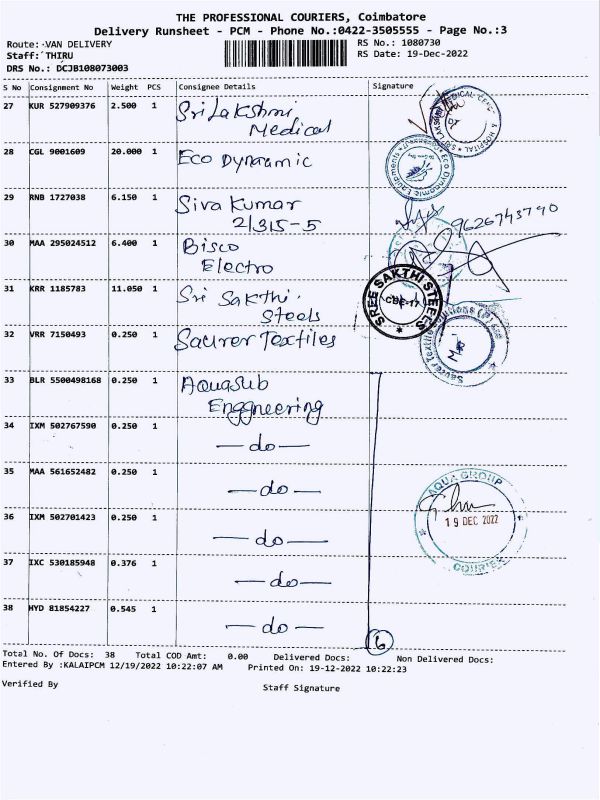 THE PROFESSIONAL COURIERS, Coimbatore
Delivery Runsheet - PCM - Phone No.:0422-3505555 - Page No.:3
Route: VAN DELIVERY
RS No.: 1080730
Staff: THIRU
RS Date: 19-Dec-2022
DRS No.: DCJB108073003
S No Consignment No Weight PCS Consignee Details Signature
27 KUR 527909376 2.500 1 Sri Lakshmi
Medical
28 CGL 9001609 20.000 1 Eco Dynamic
29 RNB 1727038 6.150 1 Siva Kumar
2/315-5
9626743790
30 MAA 295024512 6.400 1 Bisco
Electro
31 KRR 1185783 11.050 1 Sri Sakthi
Steels
SREE SAKTHI STEELS
CBE-17
32 VRR 7150493 0.250 1 Saurer Textiles
33 BLR 5500498168 0.250 1 Aquasub
Enggneering
34 IXM 502767590 0.250 1 -do-
35 MAA 561652482 0.250 1 -do-
AQUA GROUP
19 DEC 2022
COURIER
36 IXM 502701423 0.250 1 -do-
37 IXC 530185948 0.376 1 -do-
38 HYD 81854227 0.545 1 -do-
6
Total No. Of Docs: 38 Total COD Amt: 0.00 Delivered Docs: Non Delivered Docs:
Entered By :KALAIPCM 12/19/2022 10:22:07 AM Printed On: 19-12-2022 10:22:23
Verified By
Staff Signature